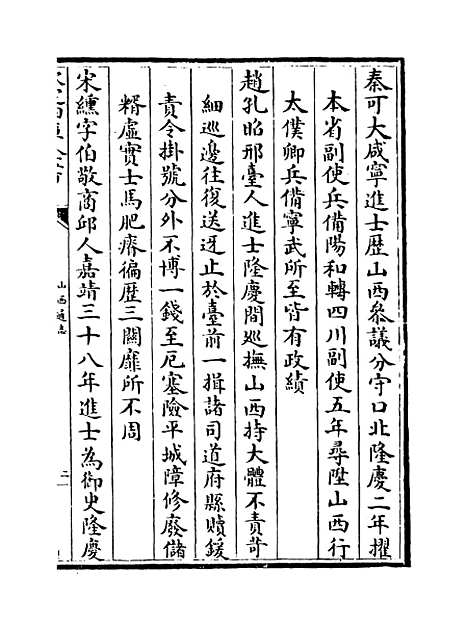 秦可大咸寧進士歷山西參議分守口北隆慶二年擢
本省副使兵備陽和轉四川副使五年尋陞山西行
太僕卿兵備寧武所至皆有政績
趙孔昭邢臺人進士隆慶間巡撫山西持大體不責苛
細巡邊往復送迓止於臺前一揖諸司道府縣贖鍰
責令掛號分外不博一錢至厄塞險平城障修廢儲
糈虛實士馬肥瘠徧歷三關靡所不周
宋纁字伯敬商邱人嘉靖三十八年進士為御史隆慶
山西通志